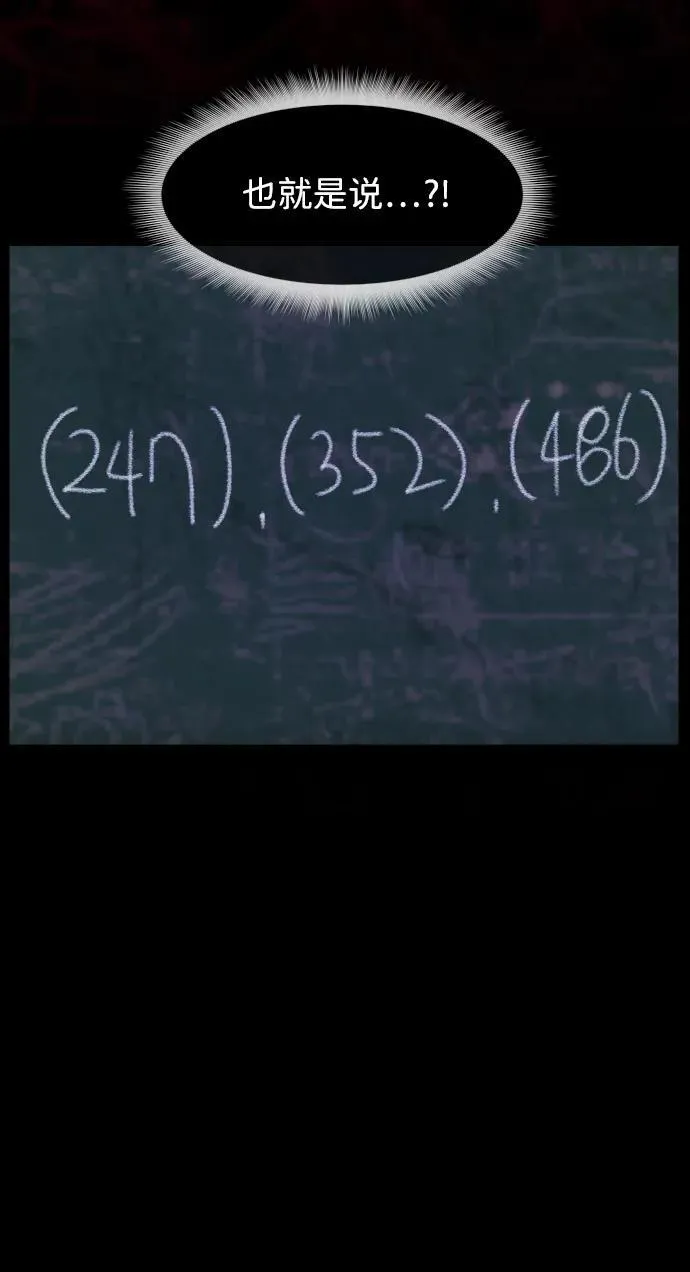 也就是说...?!
(247), (352), (486)